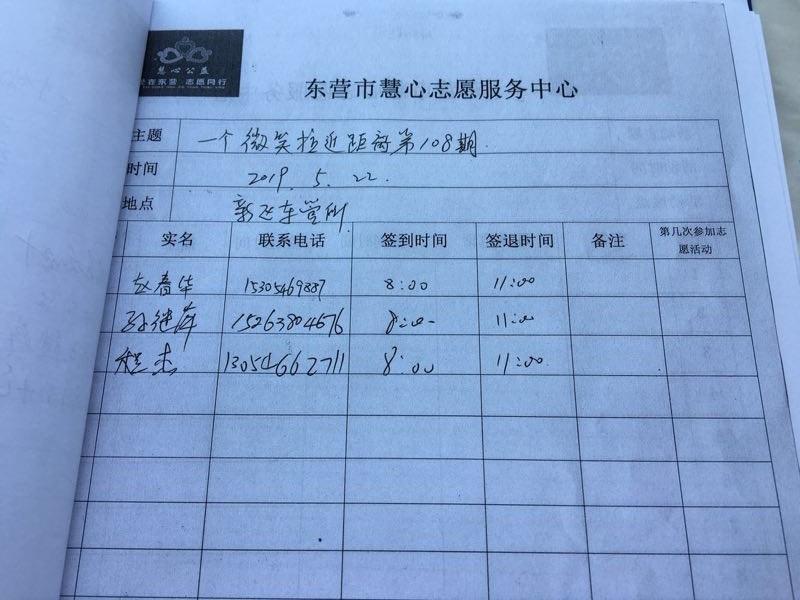 慧心公益
爱在东营 志愿同行
东营市慧心志愿服务中心
主题 一个微笑拉近距离第108期
时间 2019.5.22.
地点 新区车管所
实名 联系电话 签到时间 签退时间 备注 第几次参加志愿活动
赵春华 15305469887 8:00 11:00
孙继萍 15263804676 8:00 11:00
程杰 13054662711 8:00 11:00